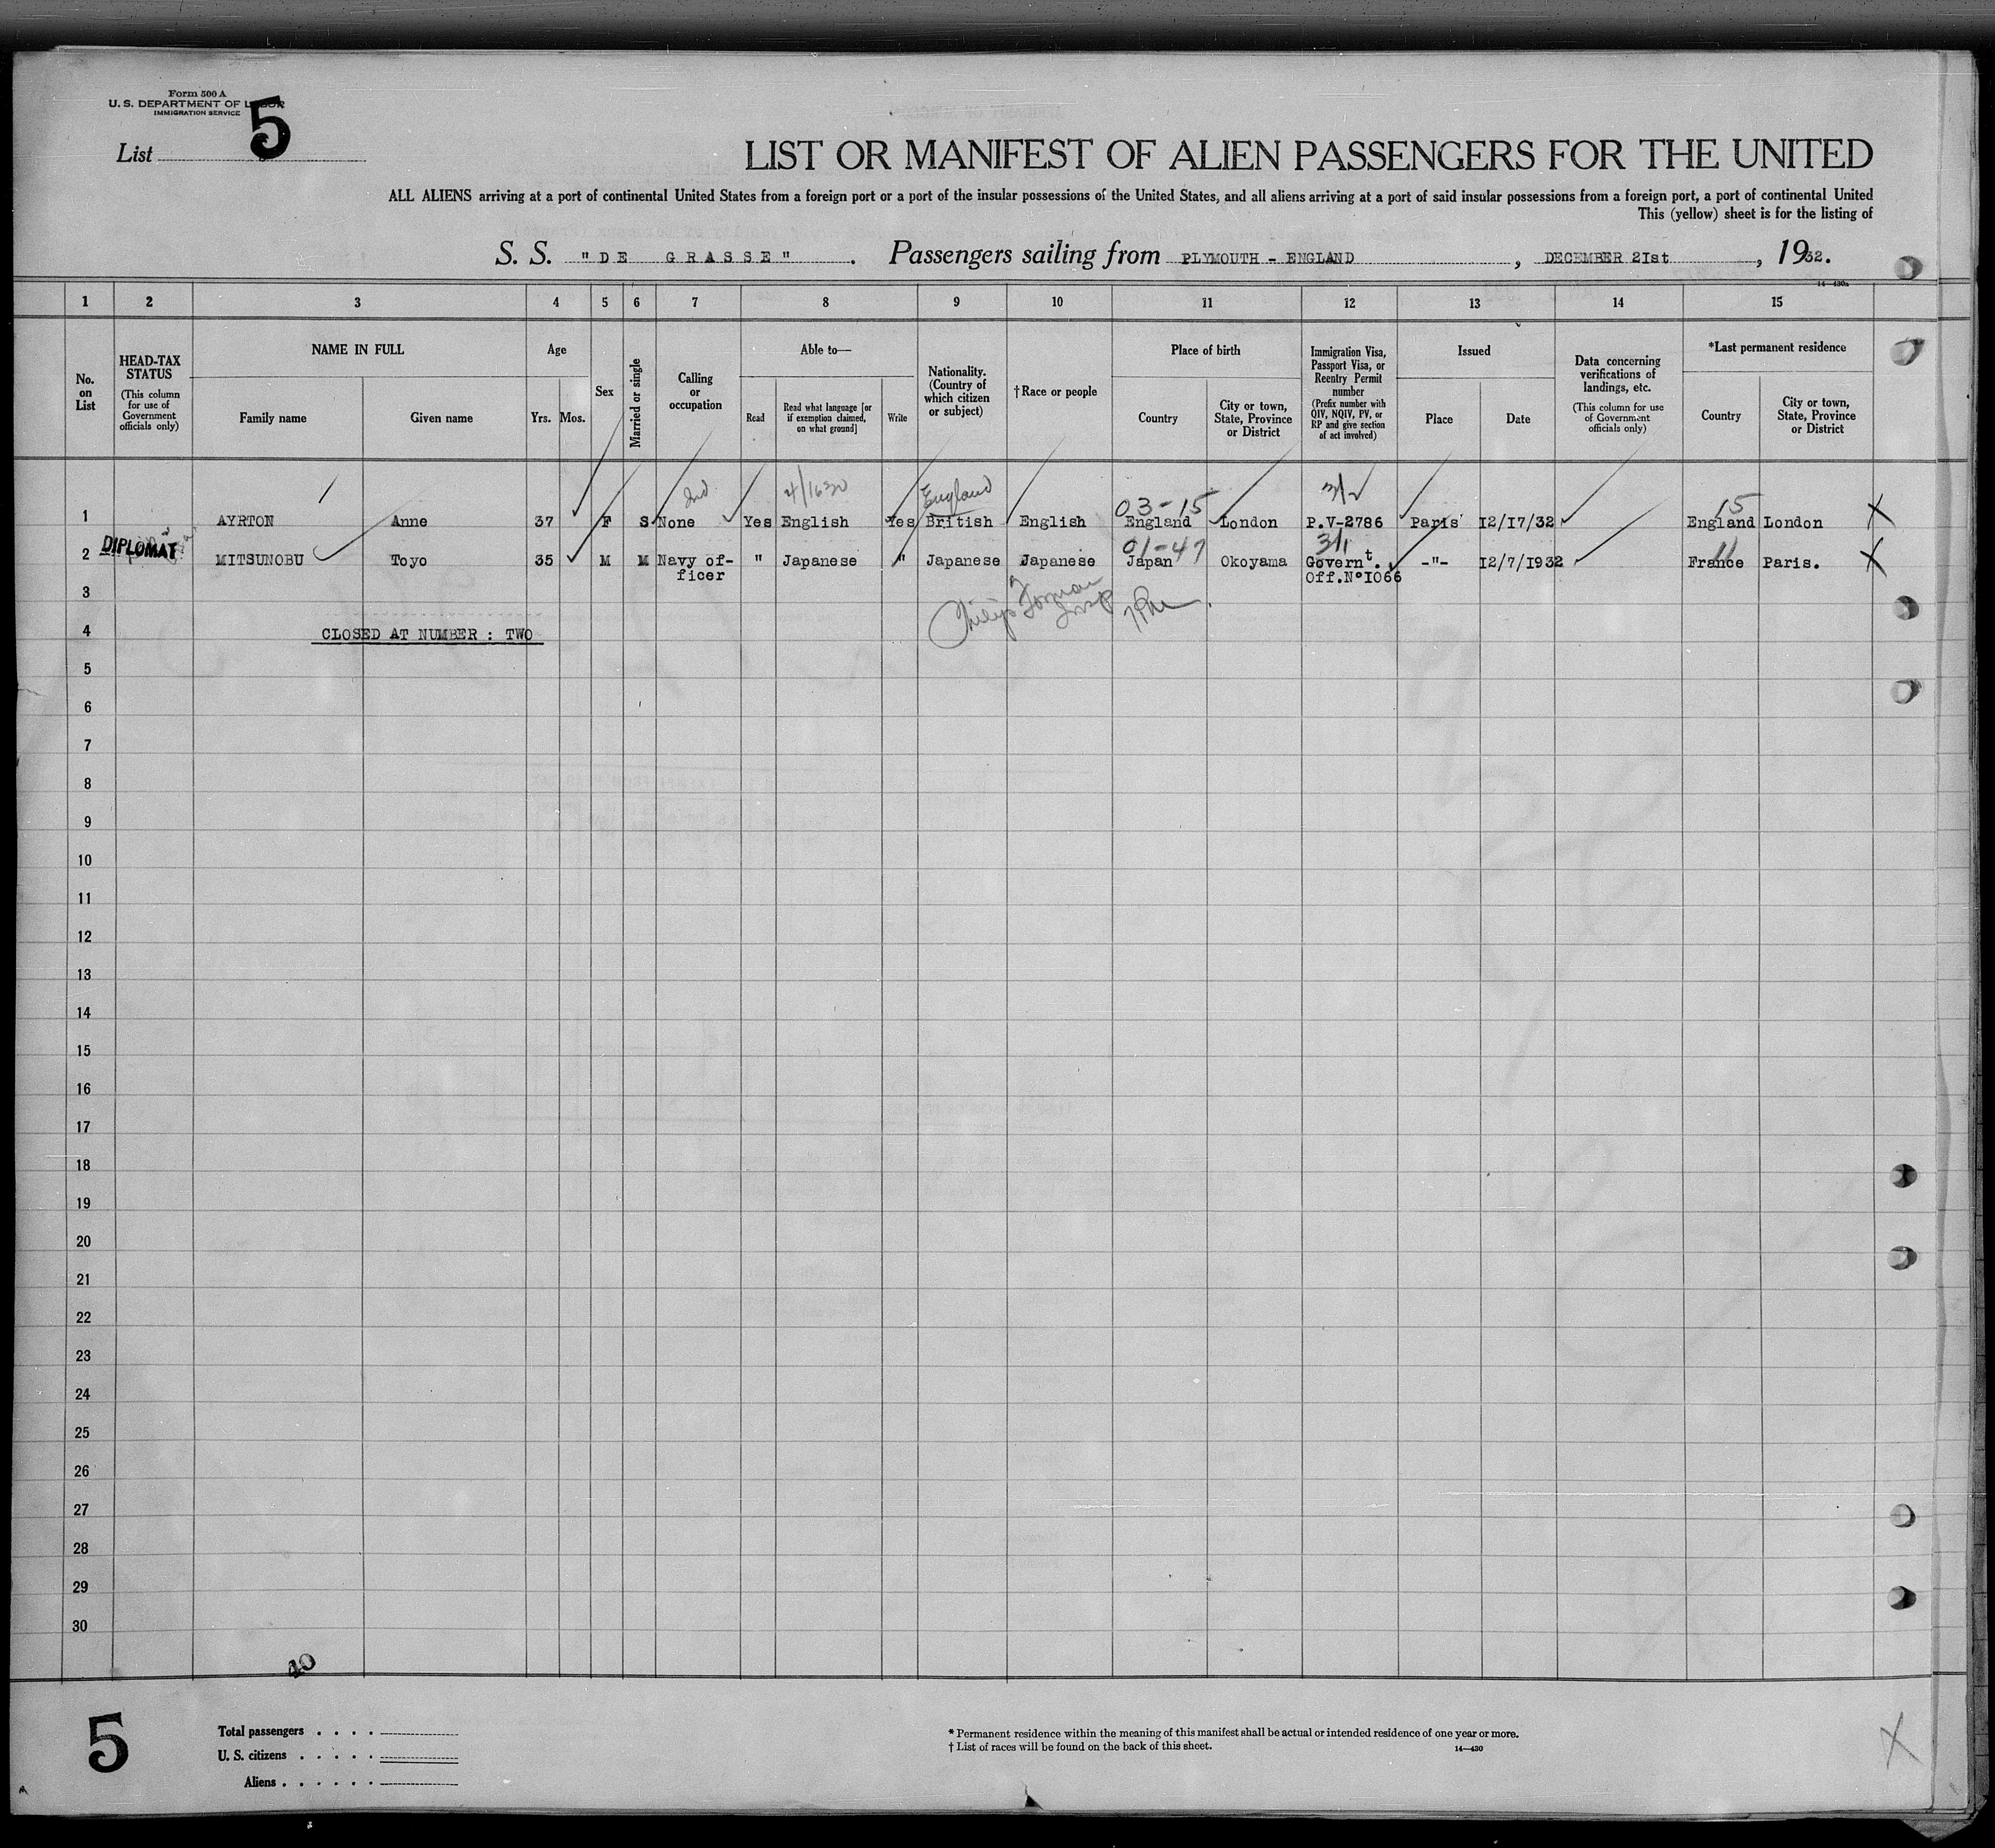 Form 500 A
U. S. DEPARTMENT OF LABOR
IMMIGRATION SERVICE
List 5
LIST OR MANIFEST OF ALIEN PASSENGERS FOR THE UNITED
ALL ALIENS arriving at a port of continental United States from a foreign port or a port of the insular possessions of the United States, and all aliens arriving at a port of said insular possessions from a foreign port, a port of continental United
This (yellow) sheet is for the listing of
S. S. "DE GRASSE". Passengers sailing from PLYMOUTH - ENGLAND, DECEMBER 2Ist, 1932.
14-430a
1 2 3 4 5 6 7 8 9 10 11 12 13 14 15
No. on List
HEAD-TAX STATUS
(This column for use of Government officials only)
NAME IN FULL
Family name Given name
Age
Yrs. Mos.
Sex
Married or single
Calling or occupation
Able to—
Read
Read what language [or if exemption claimed, on what ground]
Write
Nationality. (Country of which citizen or subject)
† Race or people
Place of birth
Country
City or town, State, Province or District
Immigration Visa, Passport Visa, or Reentry Permit number
(Prefix number with QIV, NQIV, PV, or RP and give section of act involved)
Issued
Place Date
Data concerning verifications of landings, etc.
(This column for use of Government officials only)
*Last permanent residence
Country
City or town, State, Province or District
2nd England 03-15 3/2 15
1 AYRTON Anne 37 F S None Yes English Yes British English England London P.V-2786 Paris I2/I7/32 England London X
DIPLOMAT 01-47 3/1 11
2 MITSUNOBU Toyo 35 M M Navy of- " Japanese " Japanese Japanese Japan Okoyama Governt. -"- I2/7/I932 France Paris. X
ficer Off.N°I066
3
Philip Forman Insp
4 CLOSED AT NUMBER : TWO
5
6
7
8
9
10
11
12
13
14
15
16
17
18
19
20
21
22
23
24
25
26
27
28
29
30
5
Total passengers . . . .
U. S. citizens . . . . .
Aliens . . . . . .
* Permanent residence within the meaning of this manifest shall be actual or intended residence of one year or more.
† List of races will be found on the back of this sheet.
14—430
X